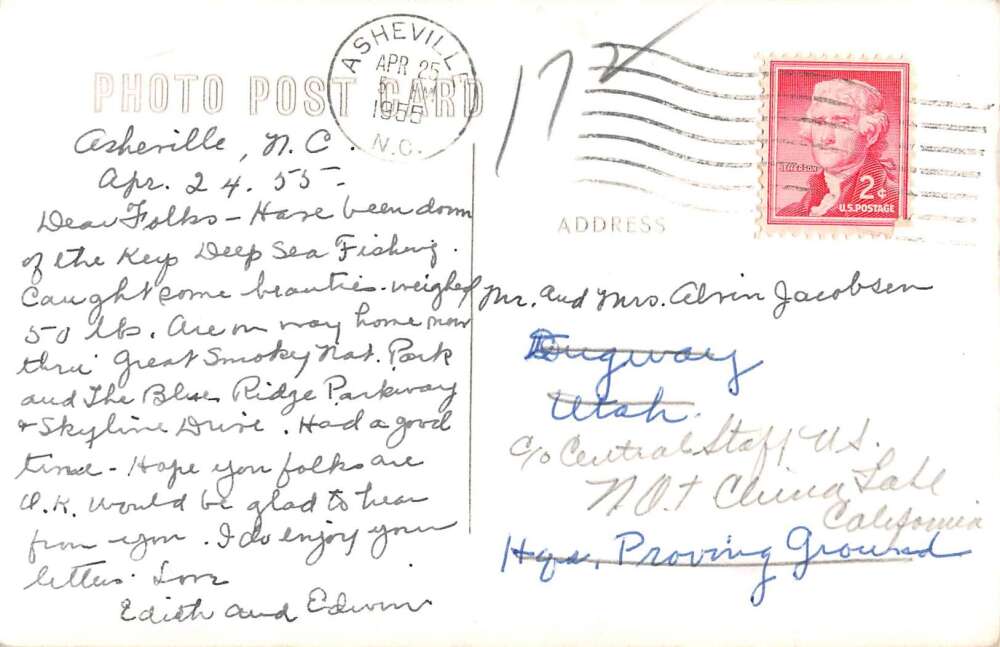 PHOTO POST CARD
ASHEVILLE
APR 25
1955
N.C.
172
Asheville, N.C.
Apr. 24. 55-
Dear Folks - Have been down
of the Keys Deep Sea Fishing.
Caught some beauties - weighed
50 lbs. Are on way home now
thru Great Smoky Nat. Park
and The Blue Ridge Parkway
+ Skyline Drive. Had a good
time - Hope you folks are
O.K. Would be glad to hear
from you. I do enjoy your
letters. Love
Edith and Edwin
JEFFERSON
2¢
U.S. POSTAGE
ADDRESS
Mr. and Mrs. Alvin Jacobsen
Dugway
Utah.
c/o Central Staff U.S.
N.O.T China Lake
California
Hqs. Proving Ground